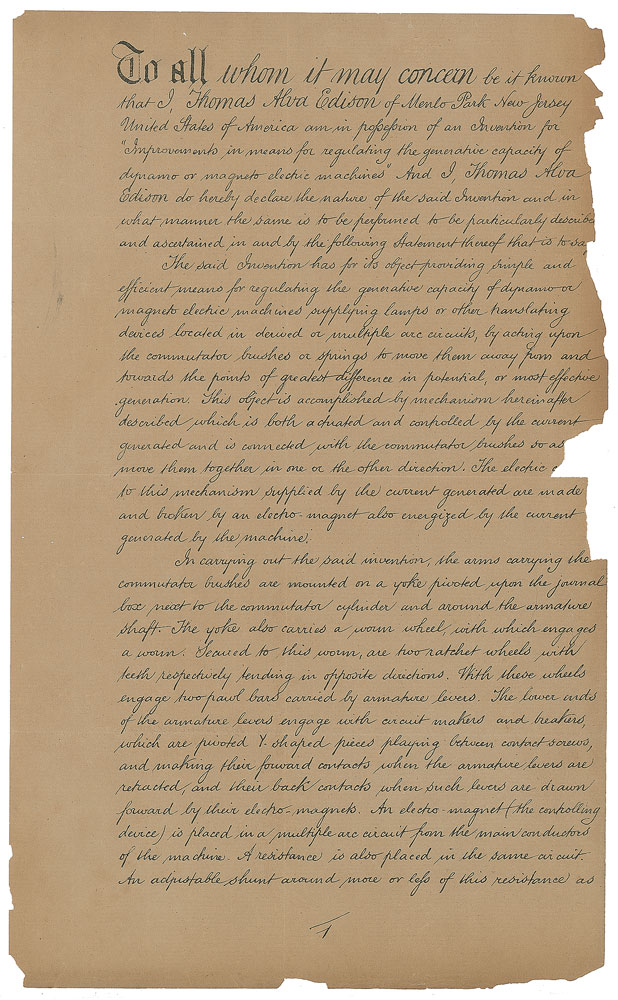 To all whom it may concern be it known
that I, Thomas Alva Edison of Menlo Park New Jersey
United States of America am in possession of an Invention for
"Improvements in means for regulating the generative capacity of
dynamo or magneto electric machines" And I, Thomas Alva
Edison do hereby declare the nature of the said Invention and in
what manner the same is to be performed to be particularly describe
and ascertained in and by the following Statement thereof that is to sa
The said Invention has for its object providing simple and
efficient means for regulating the generative capacity of dynamo or
magneto electric machines supplying lamps or other translating
devices located in derived or multiple arc circuits, by acting upon
the commutator brushes or springs to move them away from and
towards the points of greatest difference in potential, or most effective
generation. This object is accomplished by mechanism hereinafter
described, which is both actuated and controlled by the current
generated and is connected with the commutator brushes so as
move them together in one or the other direction. The electric c
to this mechanism supplied by the current generated are made
and broken by an electro-magnet also energized by the current
generated by the machine.
In carrying out the said invention, the arms carrying the
commutator brushes are mounted on a yoke pivoted upon the journal
box next to the commutator cylinder and around the armature
shaft. The yoke also carries a worm wheel, with which engages
a worm. Secured to this worm, are two ratchet wheels with
teeth respectively tending in opposite directions. With these wheels
engage two pawl bars carried by armature levers. The lower ends
of the armature levers engage with circuit makers and breakers,
which are pivoted Y-shaped pieces playing between contact screws,
and making their forward contacts when the armature levers are
retracted, and their back contacts when such levers are drawn
forward by their electro-magnets. An electro-magnet (the controlling
device) is placed in a multiple arc circuit from the main conductors
of the machine. A resistance is also placed in the same circuit.
An adjustable shunt around more or less of this resistance as
1